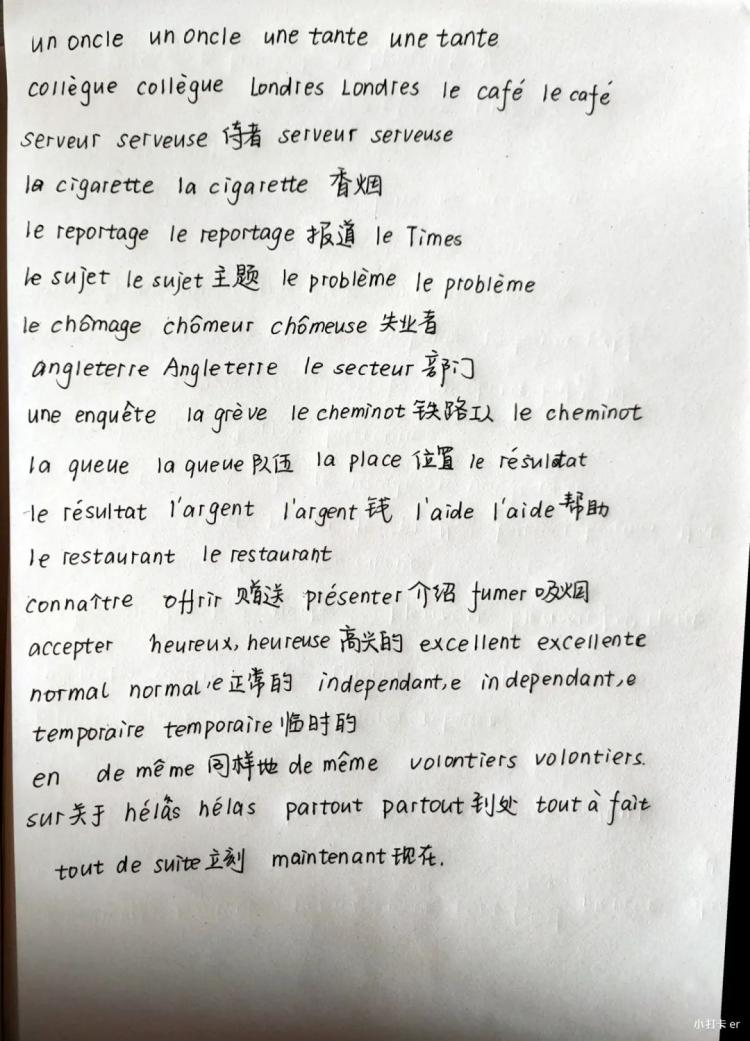 un oncle un oncle une tante une tante
collègue collègue Londres Londres le café le café
serveur serveuse 侍者 serveur serveuse
la cigarette la cigarette 香烟
le reportage le reportage 报道 le Times
le sujet le sujet 主题 le problème le problème
le chômage chômeur chômeuse 失业者
angleterre Angleterre le secteur 部门
une enquête la grève le cheminot 铁路工人 le cheminot
la queue la queue 队伍 la place 位置 le résultat
le résultat l'argent l'argent 钱 l'aide l'aide 帮助
le restaurant le restaurant
connaître offrir 赠送 présenter 介绍 fumer 吸烟
accepter heureux, heureuse 高兴的 excellent excellente
normal normal,e 正常的 independant,e independant,e
temporaire temporaire 临时的
en de même 同样地 de même volontiers volontiers.
sur 关于 hélas hélas partout partout 到处 tout à fait
tout de suite 立刻 maintenant 现在.
小打卡 er